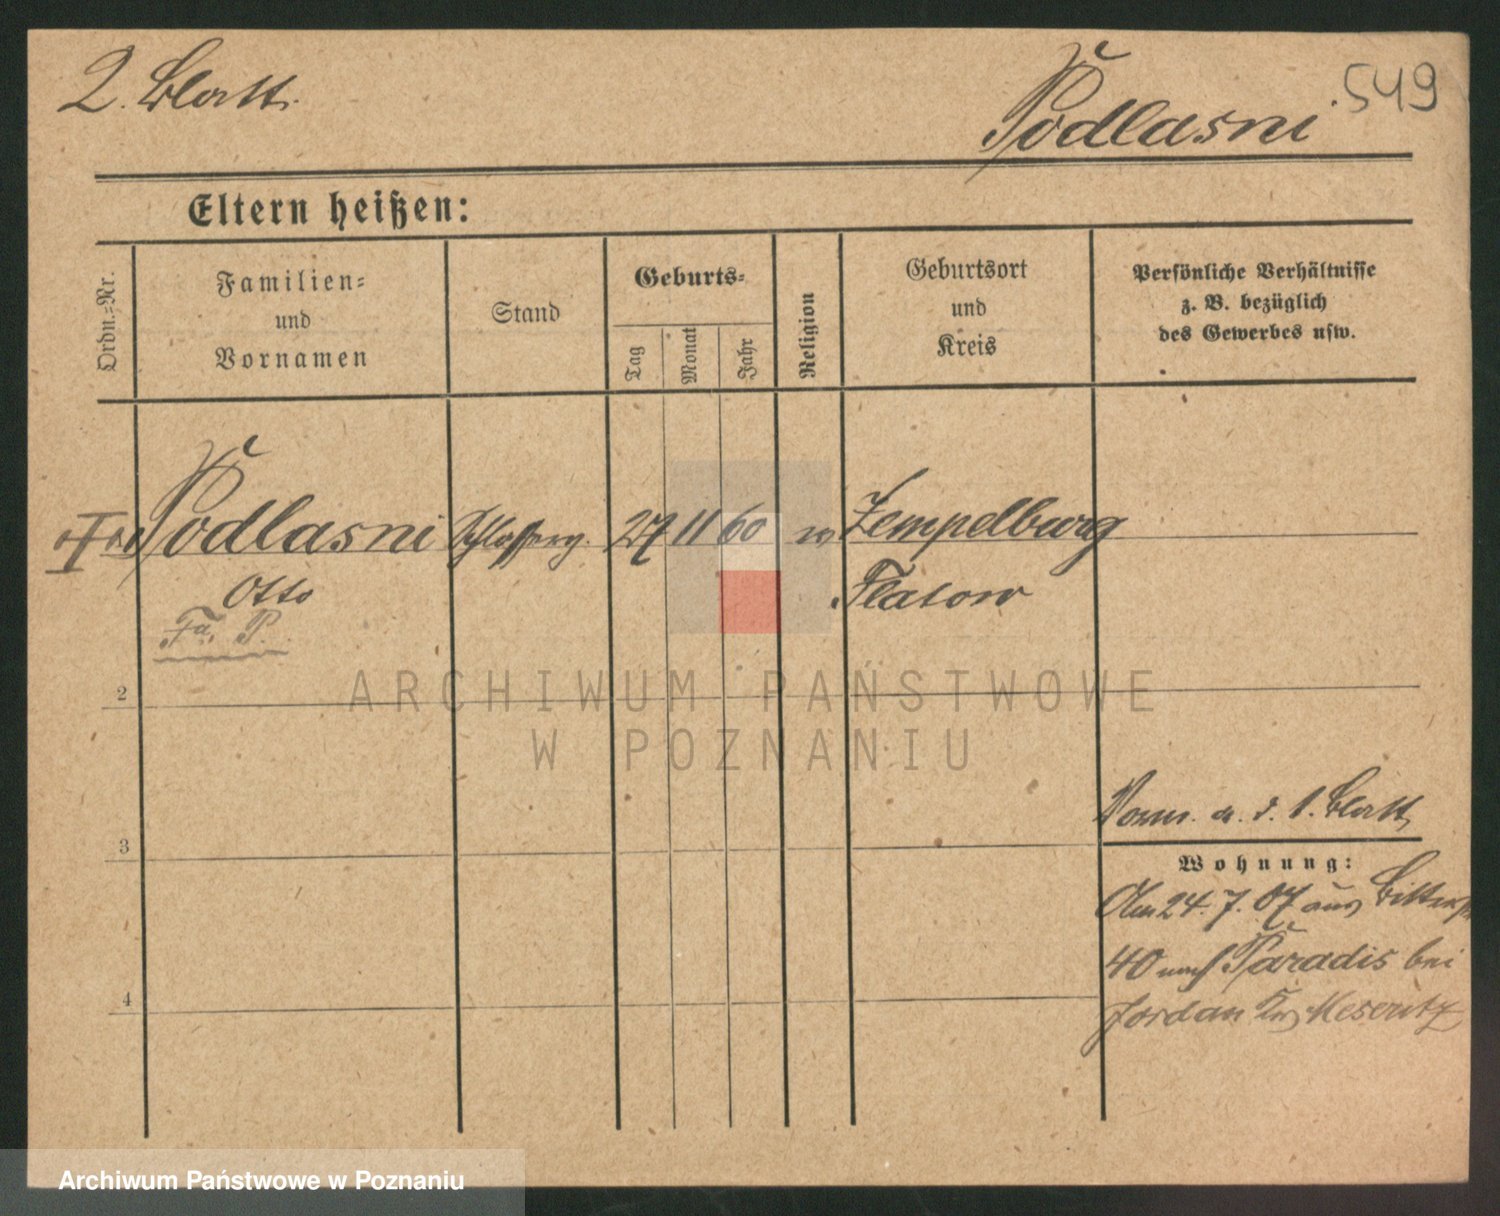 2. Blatt.
Podlasni
549
Eltern heißen:
Ordn.=Nr.
Familien=
und
Vornamen
Stand
Geburts=
Tag
Monat
Jahr
Religion
Geburtsort
und
Kreis
Persönliche Verhältnisse
z. B. bezüglich
des Gewerbes usw.
Podlasni
27 11 60
Zempelburg
Otto
Flatow
Fa. P.
2
ARCHIWUM PAŃSTWOWE
W POZNANIU
a. d. 1. Blatt
3
Wohnung:
Am 24. 7. 07 aus
40 nach Paradis bei
4
Jordan Krs Meseritz
Archiwum Państwowe w Poznaniu